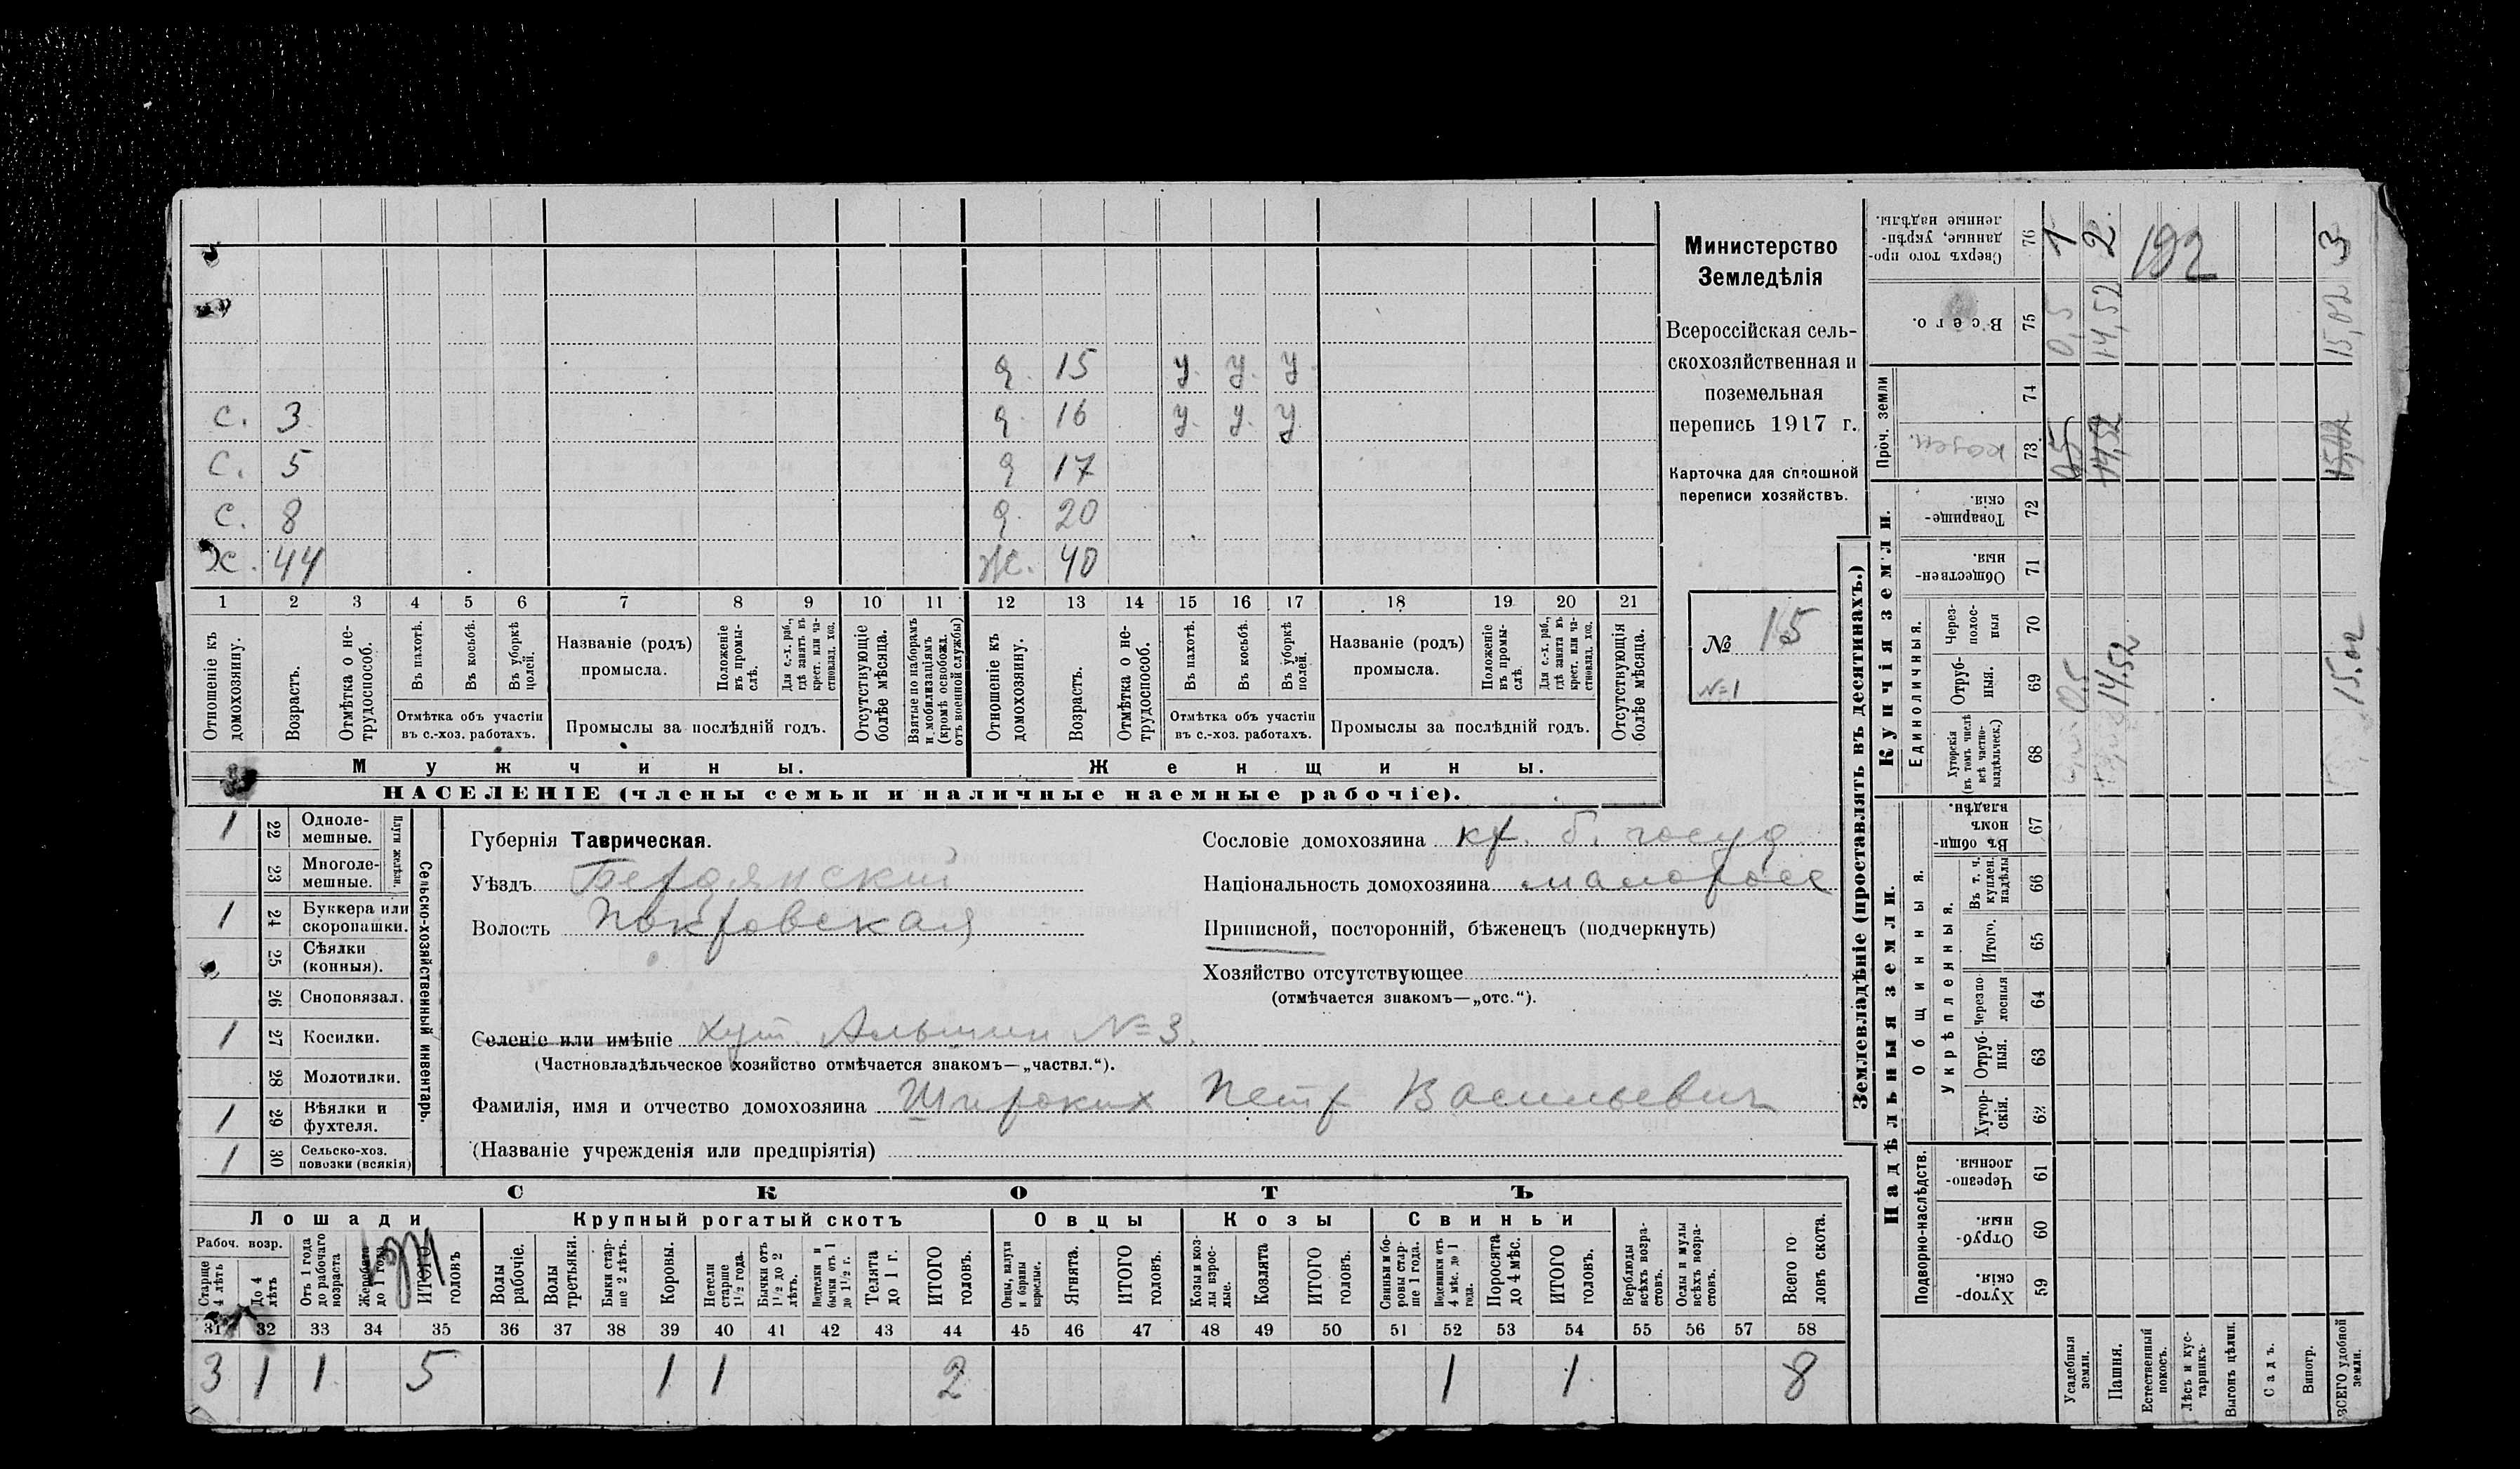 с. 3
с. 5
с. 8
х. 44
д. 15 у. у. у.
д. 16 у. у. у.
д. 17
д. 20
ж. 40
1 2 3 4 5 6 7 8 9 10 11 12 13 14 15 16 17 18 19 20 21
Отношеніе къ домохозяину.
Возрастъ.
Отмѣтка о нетрудоспособ.
Въ пахотѣ.
Въ косьбѣ.
Въ уборкѣ полей.
Отмѣтка объ участіи
въ с.-хоз. работахъ.
Названіе (родъ)
промысла.
Положеніе въ промыслѣ.
Для с.-х. раб., гдѣ занятъ въ крест. или частновлад. хоз.
Промыслы за послѣдній годъ.
Отсутствующіе болѣе мѣсяца.
Взятые по наборамъ и мобилизаціямъ (кромѣ освобожд. отъ военной службы)
Отношеніе къ домохозяину.
Возрастъ.
Отмѣтка о нетрудоспособ.
Въ пахотѣ.
Въ косьбѣ.
Въ уборкѣ полей.
Отмѣтка объ участіи
въ с.-хоз. работахъ.
Названіе (родъ)
промысла.
Положеніе въ промыслѣ
Для с.-х. раб., гдѣ занята въ крест. или частновлад. хоз.
Промыслы за послѣдній годъ.
Отсутствующія болѣе мѣсяца.
Мужчины.
Женщины.
НАСЕЛЕНІЕ (члены семьи и наличные наемные рабочіе).
Министерство
Земледѣлія
Всероссійская сель-
скохозяйственная и
поземельная
перепись 1917 г.
Карточка для сплошной
переписи хозяйствъ.
№ 15
№1
1 22 Однолемешные.
23 Многолемешные.
Плуги желѣзн.
1 24 Буккера или скоропашки.
25 Сѣялки (конныя).
26 Сноповязал.
1 27 Косилки.
28 Молотилки.
1 29 Вѣялки и фухтеля.
1 30 Сельско-хоз. повозки (всякія)
Сельско-хозяйственный инвентарь.
Губернія Таврическая.
Уѣздъ Бердянский
Волость Покровская
Сословіе домохозяина кр. б. госуд.
Національность домохозяина малоросс
Приписной, посторонній, бѣженецъ (подчеркнуть)
Хозяйство отсутствующее
(отмѣчается знакомъ—„отс.“).
Селеніе или имѣніе хут. №3.
(Частновладѣльческое хозяйство отмѣчается знакомъ—„частвл.“).
Фамилія, имя и отчество домохозяина Широких Петр Васильевич
(Названіе учрежденія или предпріятія)
СКОТЪ
Лошади
Крупный рогатый скотъ
Овцы
Козы
Свиньи
Рабоч. возр.
Старше 4 лѣтъ
До 4 лѣтъ
Отъ 1 года до рабочаго возраста
Жеребята до 1 года
ИТОГО головъ
Волы рабочіе.
Волы третьяки.
Быки старше 2 лѣтъ.
Коровы.
Нетели старше 1½ года.
Бычки отъ 1½ до 2 лѣтъ.
Подтелки и бычки отъ 1 до 1½ г.
Телята до 1 г.
ИТОГО головъ.
Овцы, валухи и бараны взрослые.
Ягнята.
ИТОГО головъ.
Козы и козлы взрослые.
Козлята
ИТОГО головъ.
Свиньи и боровы старше 1 года.
Подсвинки отъ 4 мѣс. до 1 года.
Поросята до 4 мѣс.
ИТОГО головъ.
Верблюды всѣхъ возрастовъ.
Ослы и мулы всѣхъ возрастовъ.
Всего головъ скота.
31 32 33 34 35 36 37 38 39 40 41 42 43 44 45 46 47 48 49 50 51 52 53 54 55 56 57 58
3 1 1 5 1 1 2 1 1 8
Землевладѣніе (проставлять въ десятинахъ.)
Надѣльныя земли.
Купчія земли.
Проч. земли
Подворно-наслѣдств.
Общинныя.
Укрѣпленныя.
Единоличныя.
Хуторскія. 59
Отрубныя. 60
Черезполосныя. 61
Хуторскія. 62
Отрубныя. 63
Черезполосныя 64
Итого. 65
Въ т. ч. куплен. надѣлы 66
Въ общинномъ владѣн. 67
Хуторскія (въ томъ числѣ всѣ частновладѣльческ.) 68
Отрубныя. 69
Черезполосныя 70
Общественныя. 71
Товарищескія. 72
казен. 73
74
Всего. 75
Сверхъ того проданные, укрѣпленные надѣлы. 76
Усадебныя земли. 0,5 0,5 0,5 1
Пашня. 14.52 14,52 14,52 2.
Естественный покосъ. 192
Лѣсъ и кустарникъ.
Выгонъ цѣлин.
Садъ.
Виногр.
ВСЕГО удобной земли. 15.02 15,02 15,02 3